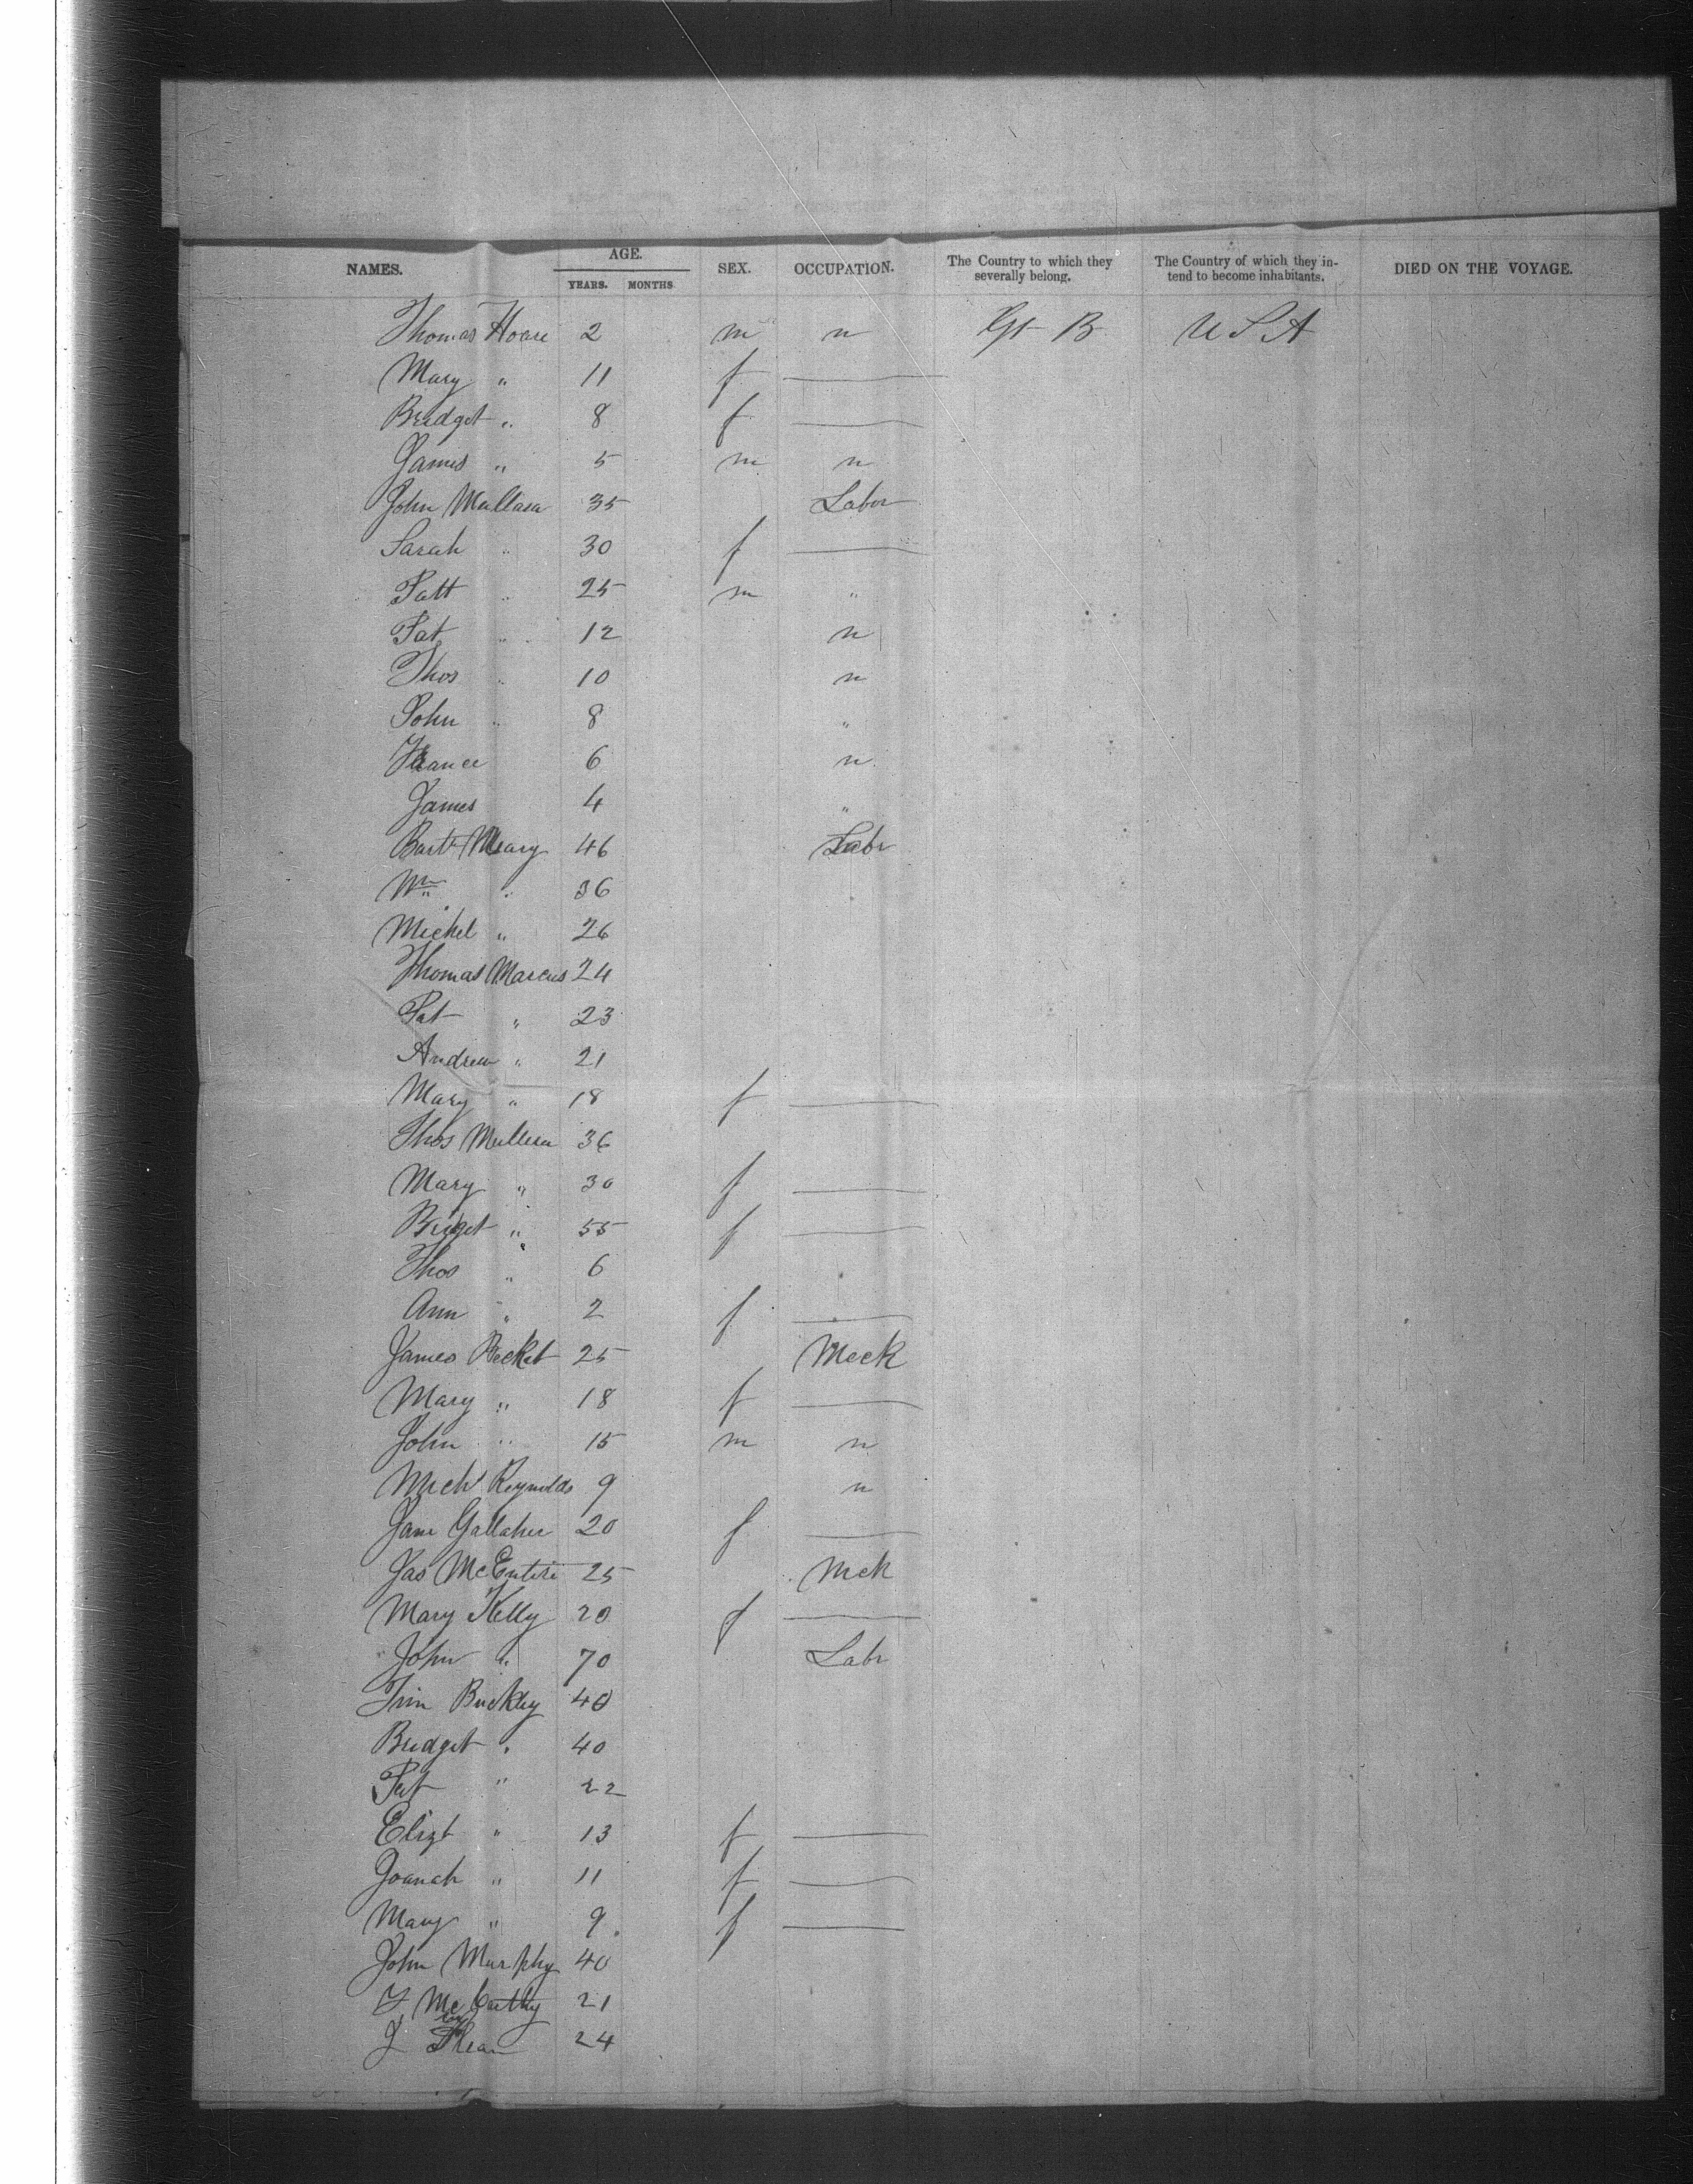 NAMES. AGE. YEARS. MONTHS SEX. OCCUPATION. The Country to which they severally belong. The Country of which they intend to become inhabitants. DIED ON THE VOYAGE.
Thomas Hoare 2 m n Gt B U S A
Mary " 11 f
Bridget " 8 f
James " 5 m n
John Mullasa 35 Labor
Sarah " 30 f
Patt " 25 m "
Pat " 12 n
Thos " 10 n
John " 8 "
6 n
James 4 "
Bart Meary 46 Labr
Wm " 36
Michel " 26
Thomas Marcus 24
Pat " 23
Andrew " 21
Mary " 18 f
Thos 36
Mary " 30 f
Bridget " 55 f
Thos " 6
Ann " 2 f
James Becket 25 Meck
Mary " 18 f
John " 15 m n
Mich Reynolds 9 n
Jane Gallaher 20 f
Jas McEntire 25 Mck
Mary Kelly 20 f
John " 70 Labr
Tim Buckley 40
Bridget " 40
Pat " 22
Elizt " 13 f
Joanah " 11 f
Mary " 9 f
John Murphy 40
McCarthy 21
J 24